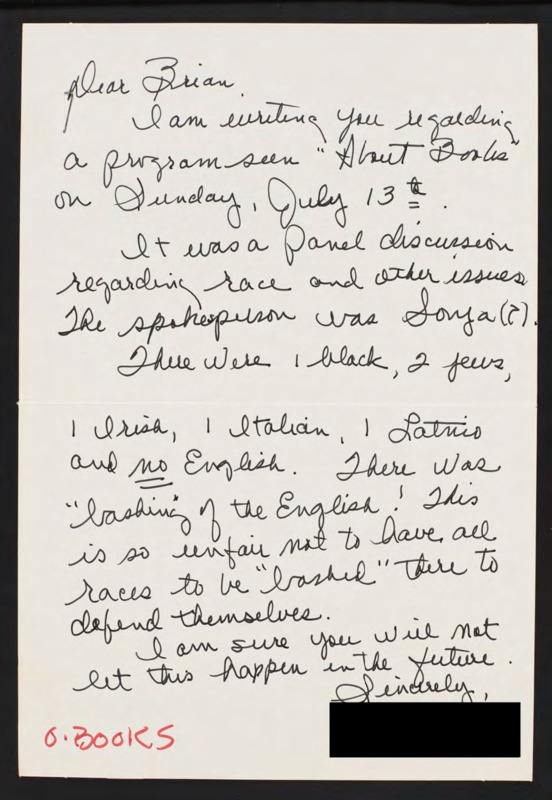 Dear Brian,
I am writing you regarding
a program seen "About Books"
on Sunday, July 13th.
It was a panel discussion
regarding race and other issues.
The spokesperson was Sonja(?).
There were 1 black, 2 jews,
1 Irish, 1 Italian, 1 Latnio
and no English. There was
"bashing" of the English! This
is so unfair not to have all
races to be "bashed" there to
defend themselves.
I am sure you will not
let this happen in the future.
Sincerely,
O.BOOKS